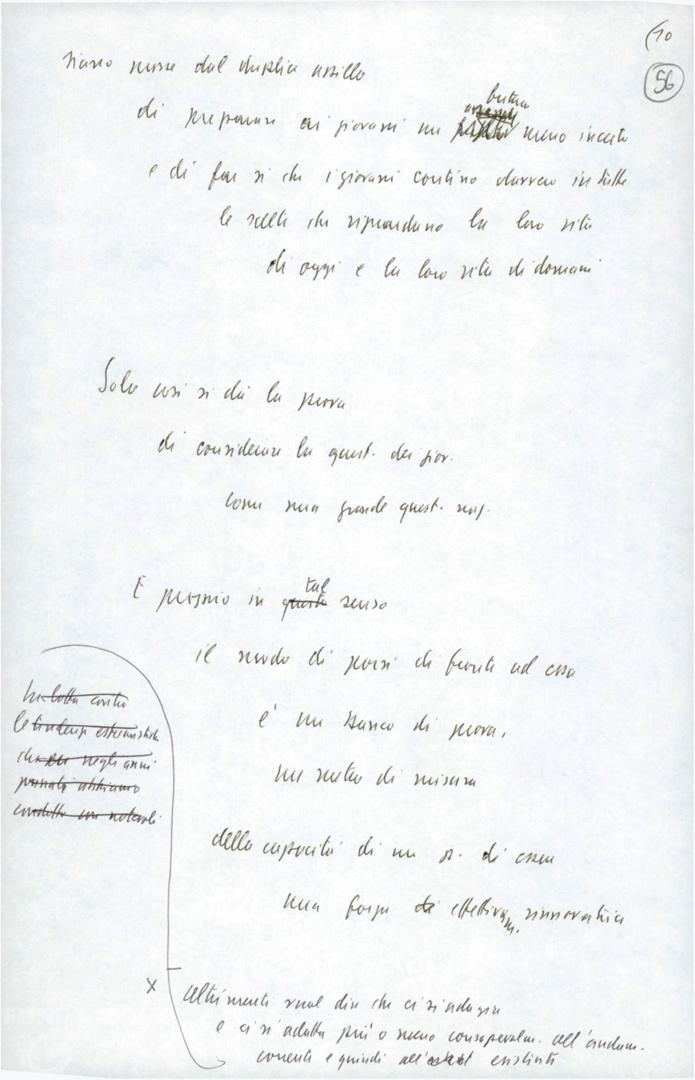 10
56
siamo mossi dal duplice assillo
di preparare ai giovani un futuro meno incerto
e di far sì che i giovani contino davvero in tutte
le scelte che riguardano la loro vita
di oggi e la loro vita di domani
Solo così si dà la prova
di considerare la quest. dei giov.
come una grande quest. naz.
E proprio in questo tal senso
il modo di porsi di fronte ad essa
è un banco di prova,
un metro di misura
della capacità di un p. di essere
una forza di effettivam. rinnovatrice
la lotta contro
le tendenze estremistiche
che negli anni
passati abbiamo
condotto con
x altrimenti vuol dire che ci si adagia
e ci si adatta più o meno consapevolm. all'andam.
corrente e quindi all' esistente